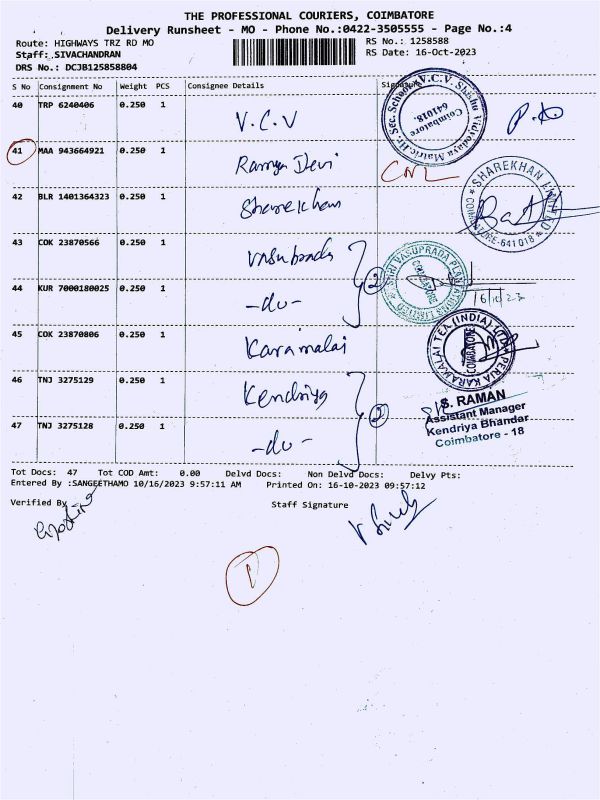 THE PROFESSIONAL COURIERS, COIMBATORE
Delivery Runsheet - MO - Phone No.:0422-3505555 - Page No.:4
Route: HIGHWAYS TRZ RD MO RS No.: 1258588
Staff: SIVACHANDRAN RS Date: 16-Oct-2023
DRS No.: DCJB125858804
S No Consignment No Weight PCS Consignee Details Signature
40 TRP 6240406 0.250 1 V.C.V
V.C.V. Shishu Vidyodaya Matric.Hr. Sec. School
Coimbatore 641018.
41 MAA 943664921 0.250 1 Ramya Devi CNL
42 BLR 1401364323 0.250 1 Sharekhan
SHAREKHAN LIMITED
COIMBATORE-641 018
43 COK 23870566 0.250 1 Vasuprada 2
SHRI VASUPRADA PLANTATIONS LIMITED
COIMBATORE
44 KUR 7000180025 0.250 1 -do- 16/10/23
45 COK 23870806 0.250 1 Karamalai
PERIA KARAMALAI TEA (INDIA) LTD
COIMBATORE
46 TNJ 3275129 0.250 1 Kendriya 2
S. RAMAN
Assistant Manager
Kendriya Bhandar
Coimbatore - 18
47 TNJ 3275128 0.250 1 -do-
Tot Docs: 47 Tot COD Amt: 0.00 Delvd Docs: Non Delvd Docs: Delvy Pts:
Entered By :SANGEETHAMO 10/16/2023 9:57:11 AM Printed On: 16-10-2023 09:57:12
Verified By Staff Signature
1